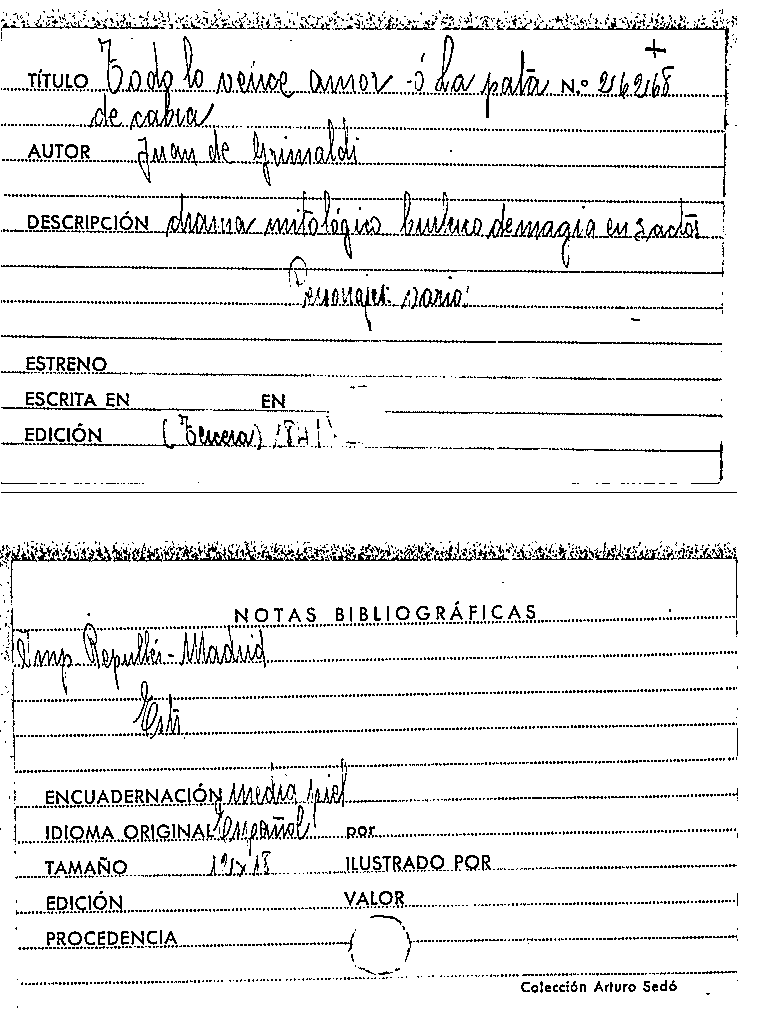 TÍTULO Todo lo vence amor ó La pata N.º 216268
de cabra
AUTOR Juan de Grimaldi
DESCRIPCIÓN drama mitológico burlesco de magia en 3 actos
Personajes: varios
ESTRENO
ESCRITA EN EN
EDICIÓN (Tercera)
NOTAS BIBLIOGRÁFICAS
Imp. Repullés - Madrid
ENCUADERNACIÓN media piel
IDIOMA ORIGINAL Español por
TAMAÑO ILUSTRADO POR
EDICIÓN VALOR
PROCEDENCIA
Colección Arturo Sedó